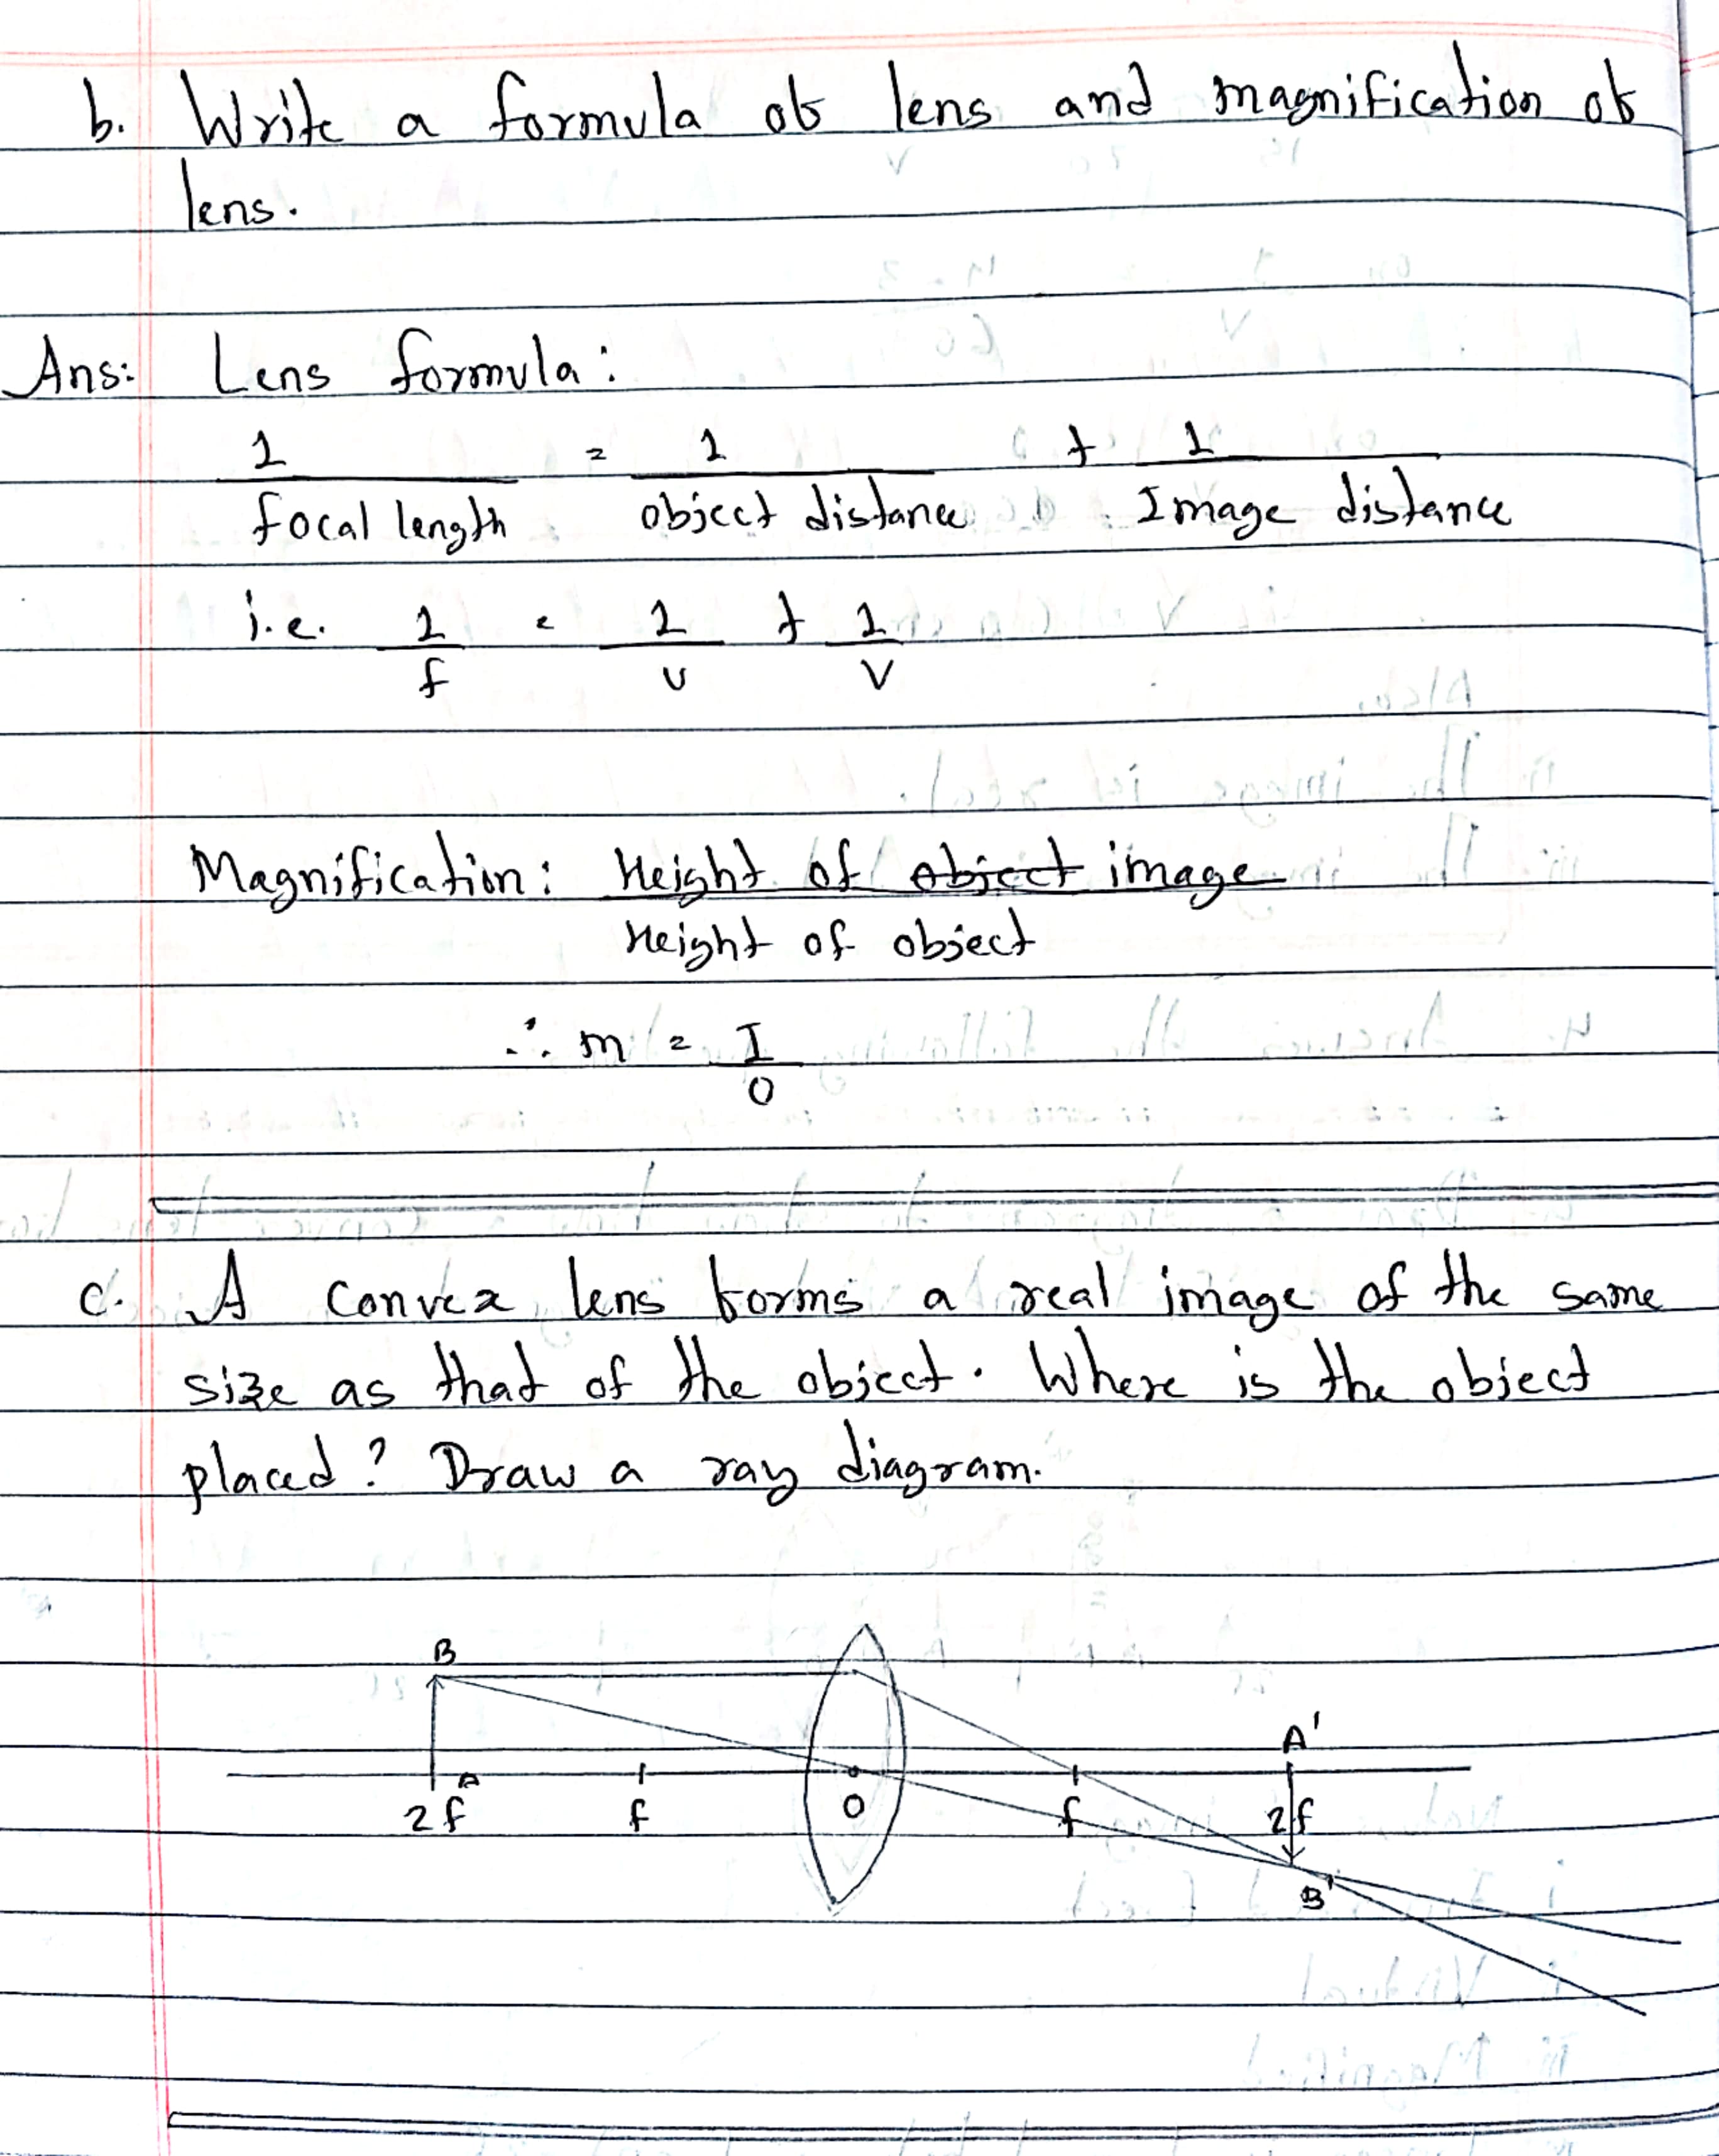 b. Write a formula of lens and magnification of
lens.
Ans: Lens formula:
1/focal length = 1/object distance + 1/Image distance
i.e. 1/f = 1/u + 1/v
Magnification: Height of object image
Height of object
∴ m = I/O
c. A convex lens forms a real image of the same
size as that of the object. Where is the object
placed? Draw a ray diagram.
B
A'
A
2f f O f 2f
B'